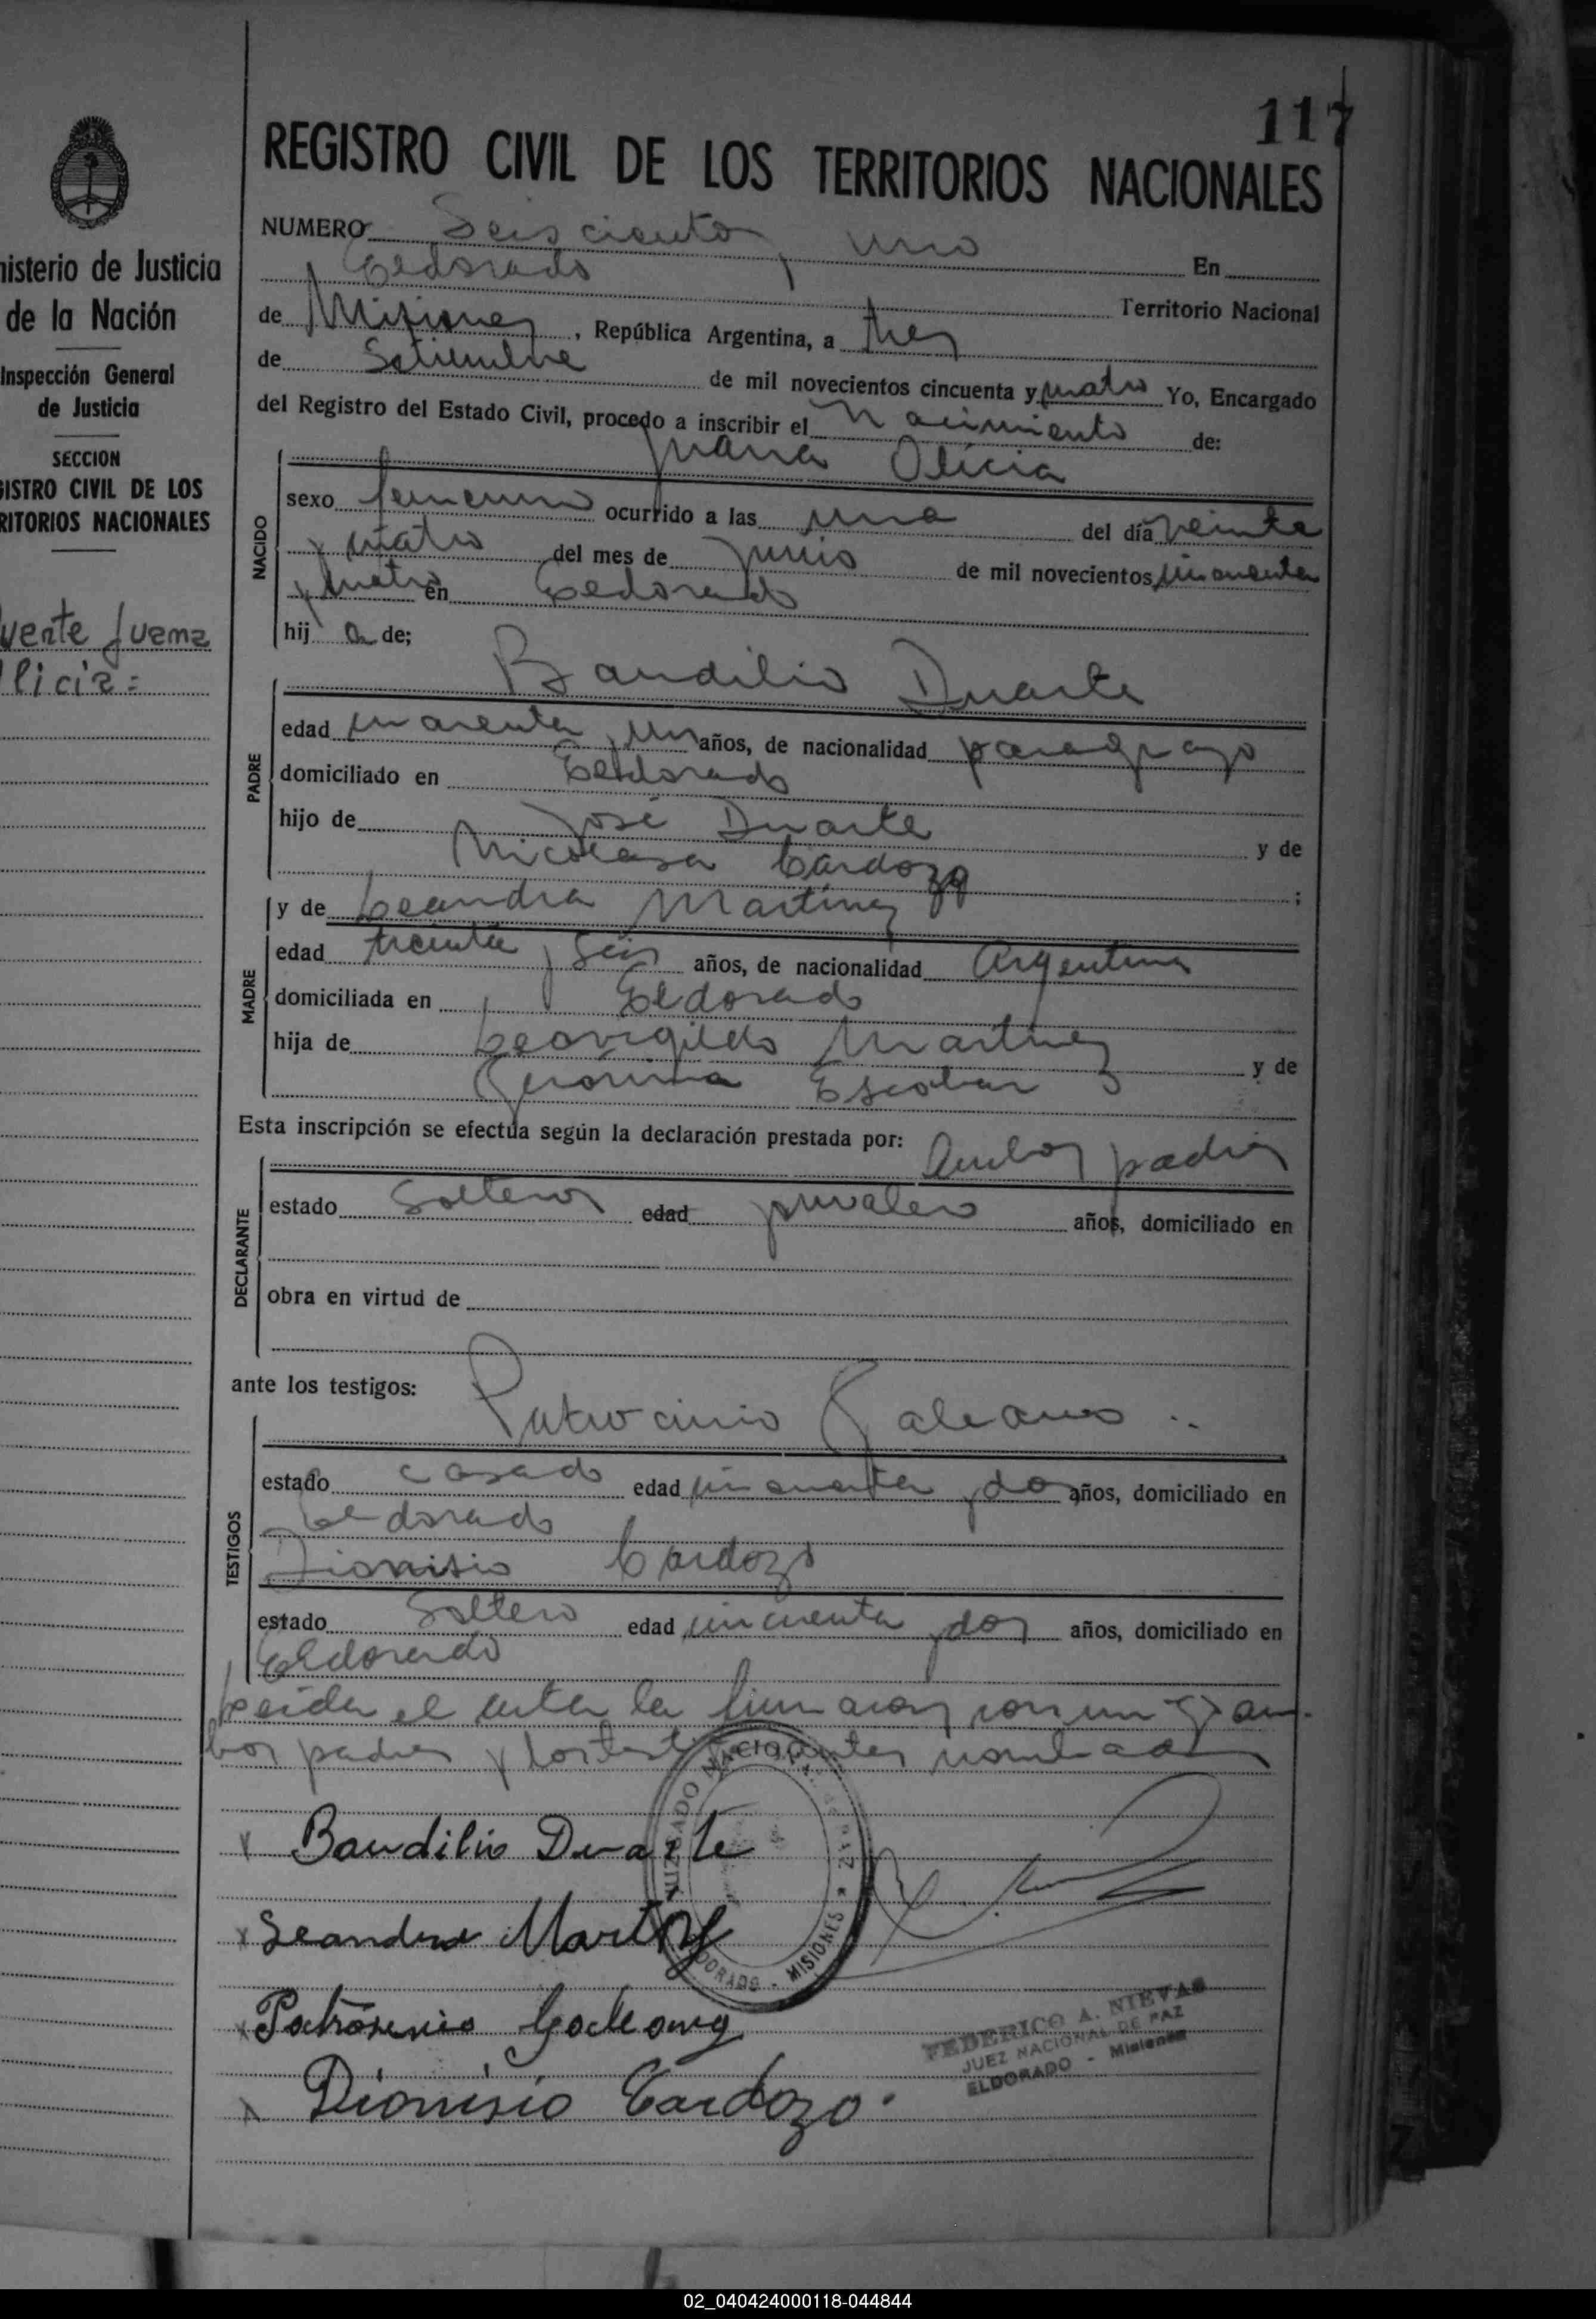 117
REGISTRO CIVIL DE LOS TERRITORIOS NACIONALES
nisterio de Justicia
de la Nación
Inspección General
de Justicia
SECCION
GISTRO CIVIL DE LOS
RITORIOS NACIONALES
Juana
licia =
NUMERO Seiscientos y uno
Eldorado En
Territorio Nacional
de Misiones, República Argentina, a tres
de Setiembre de mil novecientos cincuenta y cuatro Yo, Encargado
del Registro del Estado Civil, procedo a inscribir el Nacimiento de:
Juana Olicia
NACIDO
sexo femenino ocurrido a las una del día veinte
y cuatro del mes de junio de mil novecientos cincuenta
y cuatro en Eldorado
hij a de;
Baudilio Duarte
PADRE
edad cuarenta y un años, de nacionalidad paraguayo
domiciliado en Eldorado
hijo de José Duarte y de
Nicolasa Cardozo ;
y de Leandra Martinez
MADRE
edad treinta y seis años, de nacionalidad Argentina
domiciliada en Eldorado
hija de Leovigildo Martinez y de
Gerónima Escobar
Esta inscripción se efectúa según la declaración prestada por: Ambos padres
DECLARANTE
estado Solteros edad años, domiciliado en
obra en virtud de
ante los testigos:
Patrocinio Galeano
TESTIGOS
estado casado edad cincuenta y dos años, domiciliado en
Eldorado
Dionisio Cardozo
estado Soltero edad cincuenta y dos años, domiciliado en
Eldorado
Leida el acta la firmaron conmigo am-
bos padres y los testigos antes nombrados
Baudilio Duarte
Leandra Martinez
JUZGADO NACIONAL DE PAZ * ELDORADO - MISIONES *
Patrosinio Galeano
FEDERICO A. NIEVAS
JUEZ NACIONAL DE PAZ
ELDORADO - Misiones
Dionisio Cardozo.
02_040424000118-044844